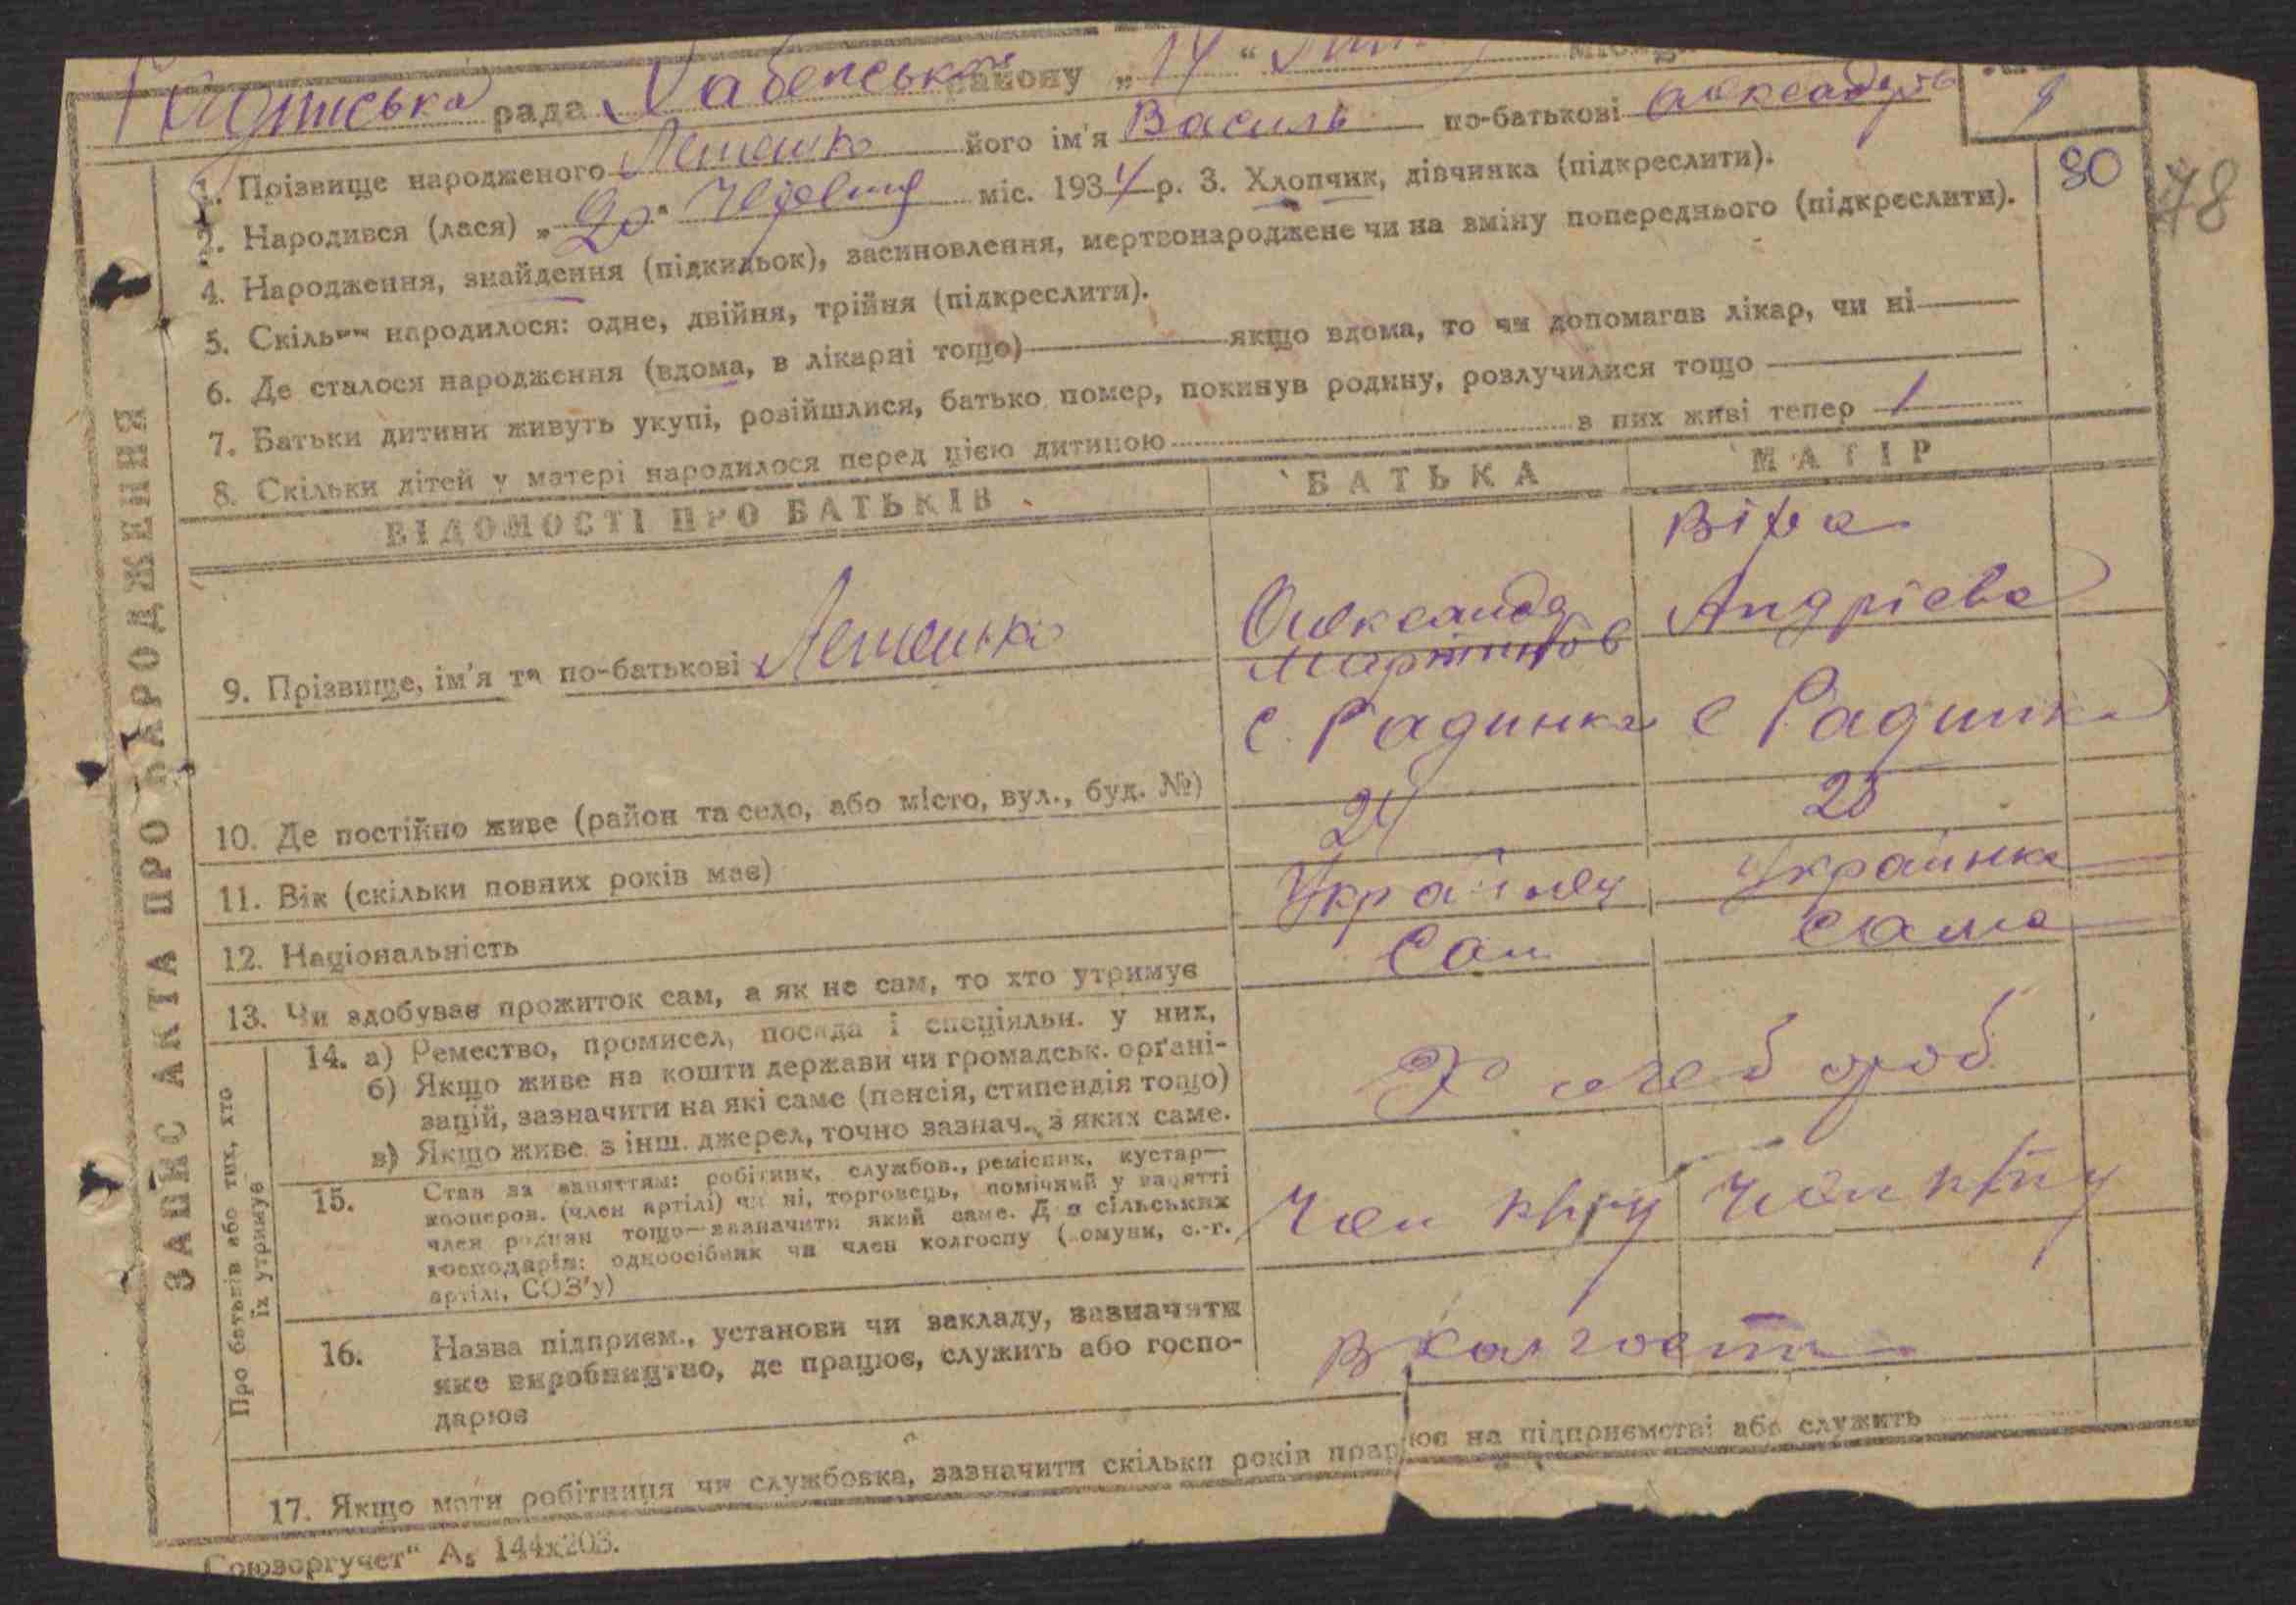 рада Хабенського району „14“
1. Прізвище народженого Лешенко його ім'я Василь по-батькові Олександров
9
2. Народився (лася) „20“ міс. 1934 р. 3. Хлопчик, дівчинка (підкреслити).
80
78
4. Народження, знайдення (підкидьок), засиновлення, мертвонароджене чи на зміну попереднього (підкреслити).
5. Скільки народилося: одне, двійня, трійня (підкреслити).
6. Де сталося народження (вдома, в лікарні тощо) якщо вдома, то чи допомагав лікар, чи ні
7. Батьки дитини живуть укупі, розійшлися, батько помер, покинув родину, розлучилися тощо
8. Скільки дітей у матері народилося перед цією дитиною в них живі тепер 1
ЗАПИС АКТА ПРО НАРОДЖЕННЯ
ВІДОМОСТІ ПРО БАТЬКІВ БАТЬКА МАТІР
9. Прізвище, ім'я та по-батькові Лешенко Олександр Мартинов Віра Андрієва
10. Де постійно живе (район та село, або місто, вул., буд. №) С. Радинка С Радинка
11. Вік (скільки повних років має) 24 28
12. Національність Українец Украинка
13. Чи здобуває прожиток сам, а як не сам, то хто утримує Сам Сама
Про батьків або тих, хто їх утримує
14. а) Ремество, промисел, посада і спеціяльн. у них,
б) Якщо живе на кошти держави чи громадськ. орґані-
зацій, зазначити на які саме (пенсія, стипендія тощо)
в) Якщо живе з інш. джерел, точно зазнач., з яких саме.
Хлебороб
15. Стан за заняттям: робітник, службов., ремісник, кустар—
кооперов. (член артілі) чи ні, торговець, помічний у занятті
член родини тощо—зазначити який саме. Для сільських
господарів: одноосібник чи член колгоспу (комуни, с.-г.
артілі, СОЗ'у)
Член Член
16. Назва підприєм., установи чи закладу, зазначити
яке виробництво, де працює, служить або госпо-
дарює
В колгоспи
17. Якщо мати робітниця чи службовка, зазначити скільки років працює на підприємстві або служить
Союзоргучет“ А₅ 144х203.